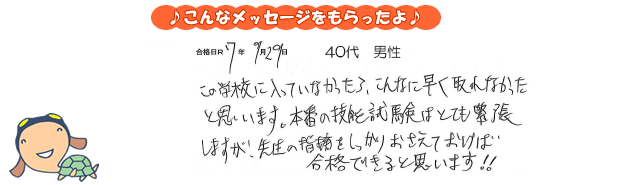 ♪こんなメッセージをもらったよ♪
合格日R 7年 9月29日 40代 男性
この学校に入っていなかったら、こんなに早く取れなかった
と思います。本番の技能試験はとても緊張
しますが、先生の指摘をしっかりおさえておけば
合格できると思います!!